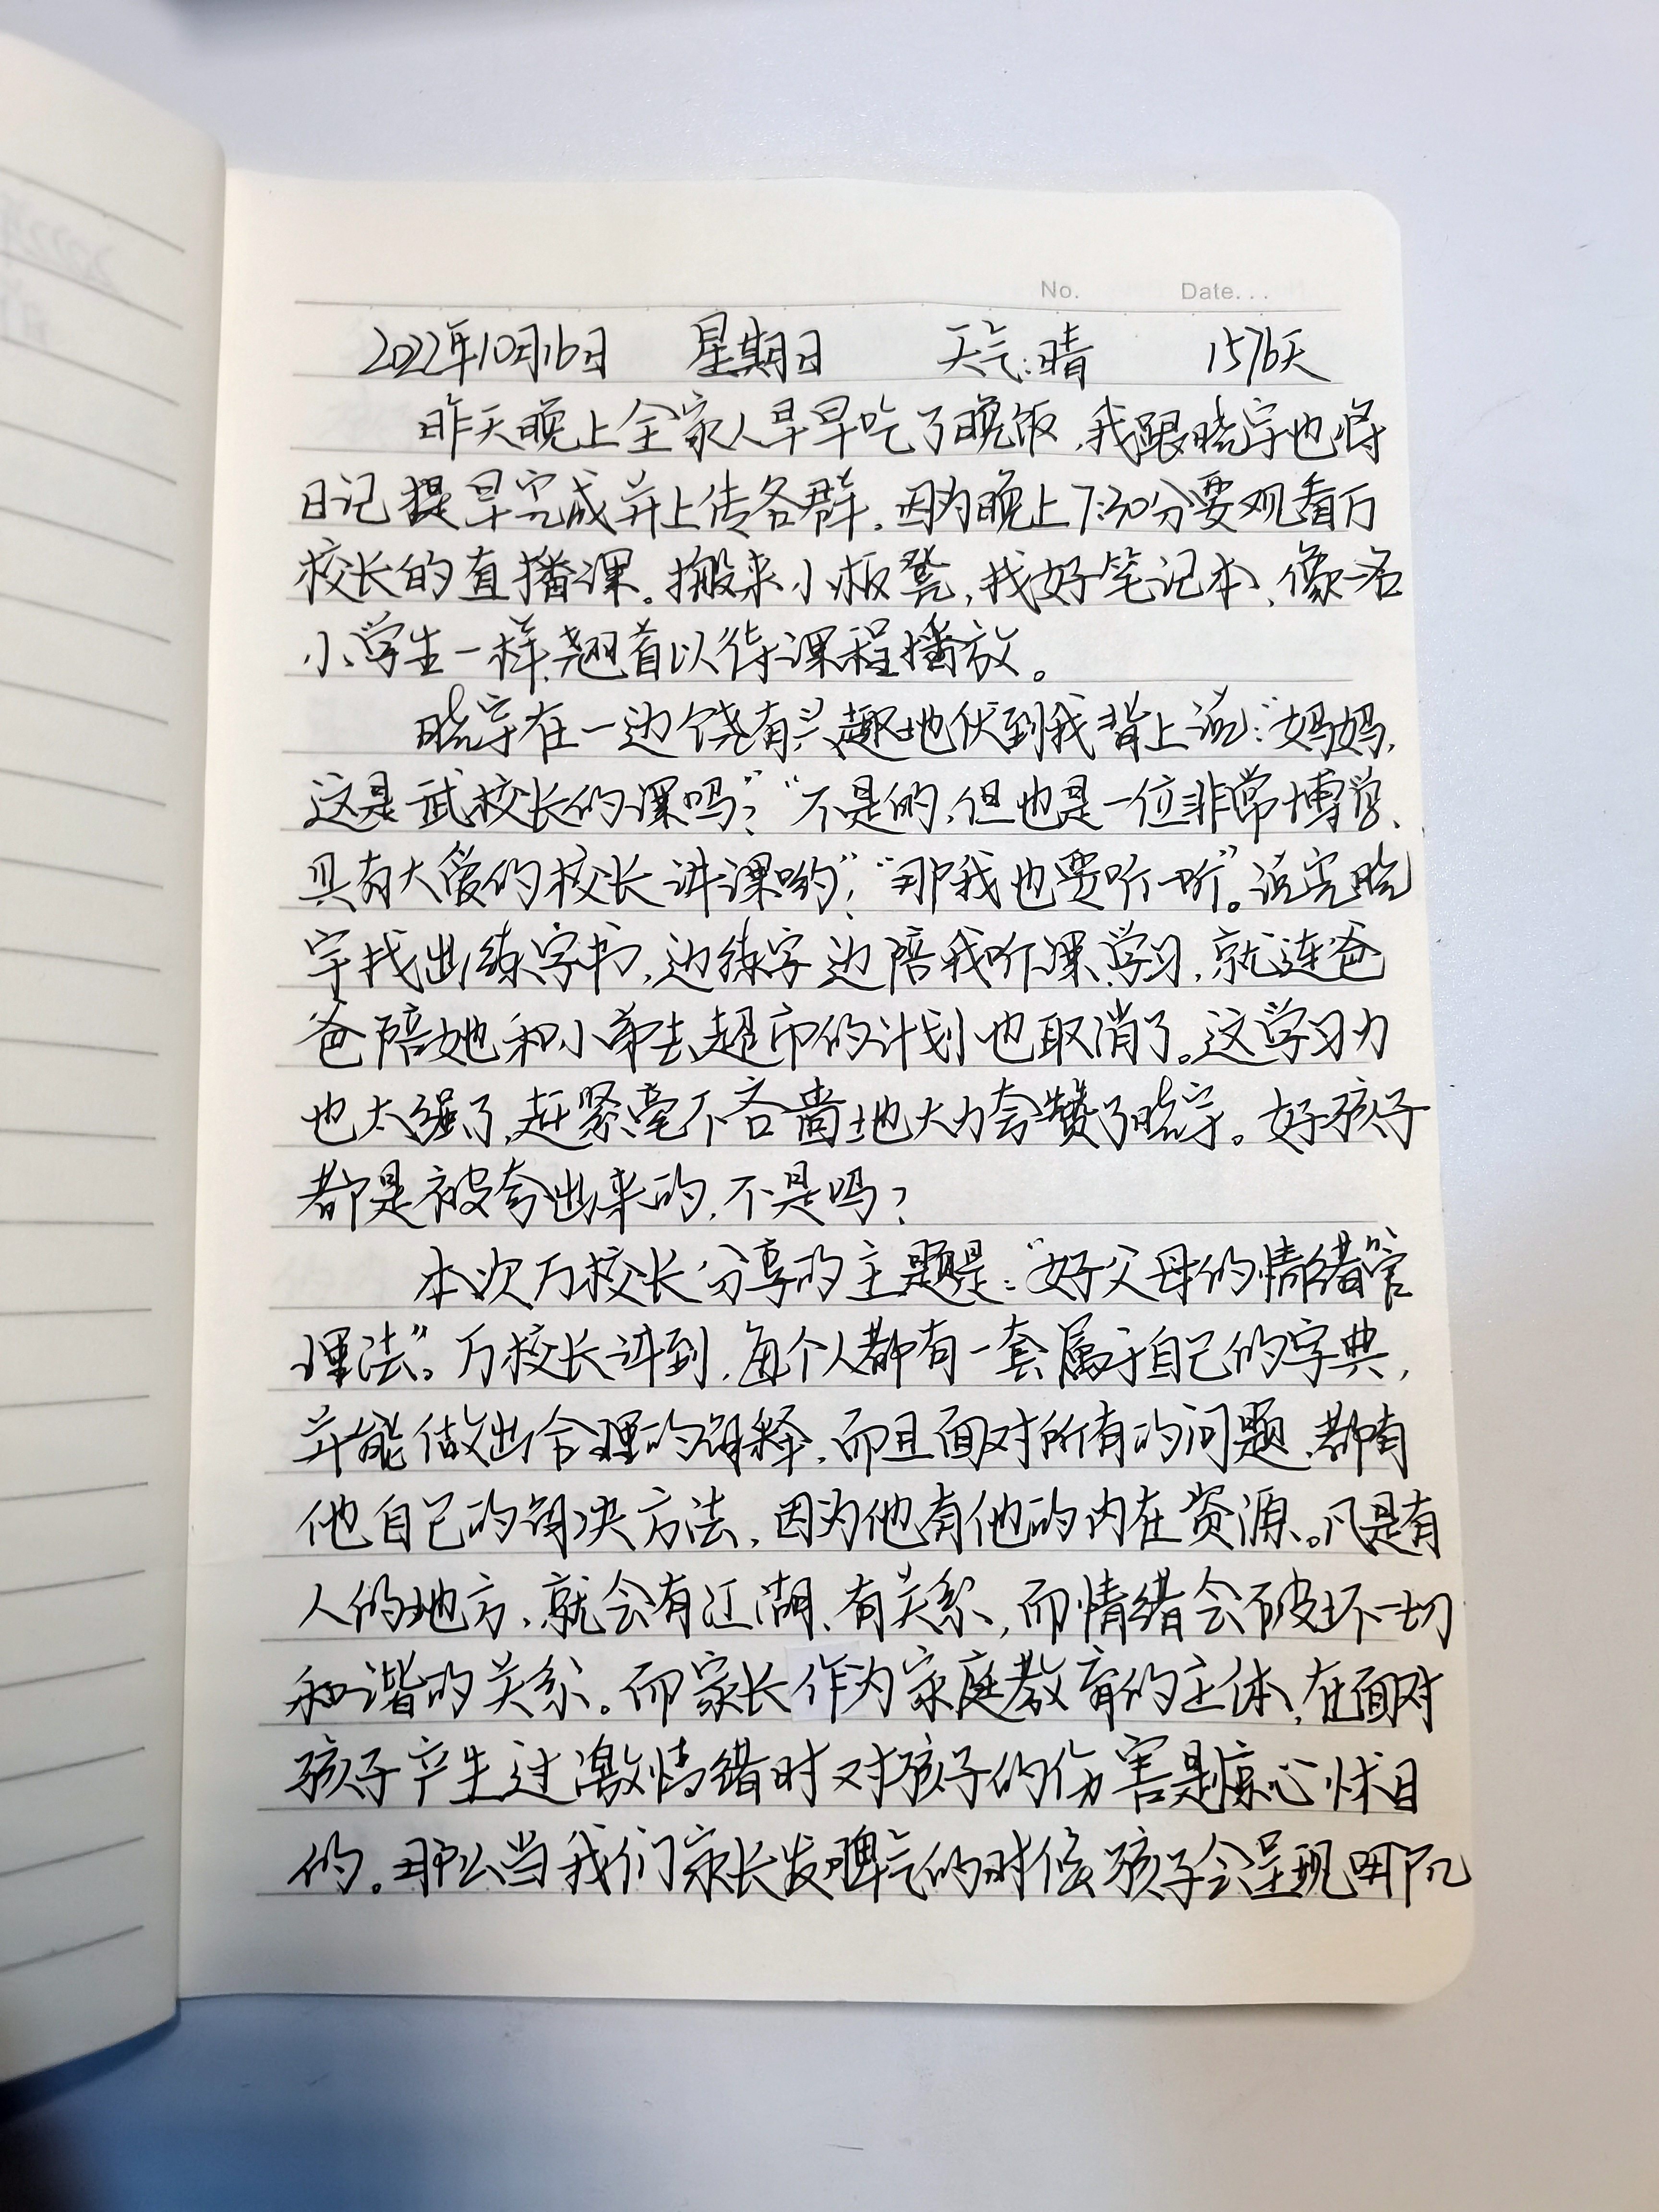 No. Date...
2022年10月16日 星期日 天气:晴 1576天
昨天晚上全家人早早吃了晚饭,我跟晓宇也将
日记提早完成并上传各群。因为晚上7:30分要观看万
校长的直播课。搬来小板凳,找好笔记本、像一名
小学生一样翘首以待课程播放。
晓宇在一边饶有兴趣地伏到我背上说:“妈妈,
这是武校长的课吗?”“不是的,但也是一位非常博学、
具有大爱的校长讲课哟!”“那我也要听一听”。说完晓
宇找出练字书,边练字边陪我听课学习,就连爸
爸陪她和小弟去超市的计划也取消了。这学习力
也太强了,赶紧毫不吝啬地大力夸赞了晓宇。好孩子
都是被夸出来的,不是吗?
本次万校长分享的主题是:“好父母的情绪管
理法”。万校长讲到,每个人都有一套属于自己的字典,
并能做出合理的解释,而且面对所有的问题,都有
他自己的解决方法,因为他有他的内在资源。凡是有
人的地方,就会有江湖、有关系,而情绪会破坏一切
和谐的关系。而家长作为家庭教育的主体,在面对
孩子产生过激情绪时对孩子的伤害是惊心怵目
的。那么当我们家长发脾气的时候孩子会呈现哪几